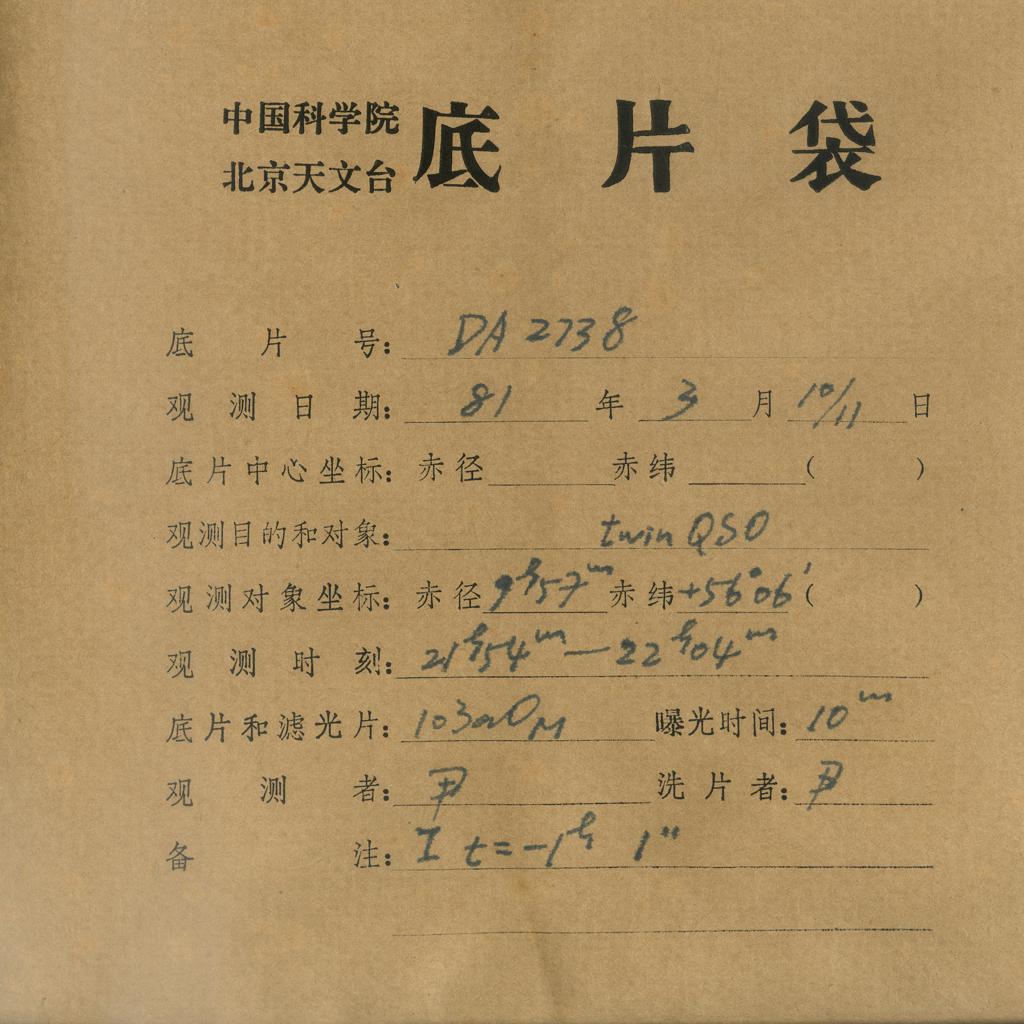 中国科学院
北京天文台 底片袋
底片号: DA 2738
观测日期: 81 年 3 月 10/11 日
底片中心坐标: 赤径 赤纬 ( )
观测目的和对象: twin QSO
观测对象坐标: 赤径 9ʰ57ᵐ 赤纬 +56°06′ ( )
观测时刻: 21ʰ54ᵐ—22ʰ04ᵐ
底片和滤光片: 103aO 曝光时间: 10ᵐ
观测者: 尹 洗片者: 尹
备注: I t=-1ʰ 1"